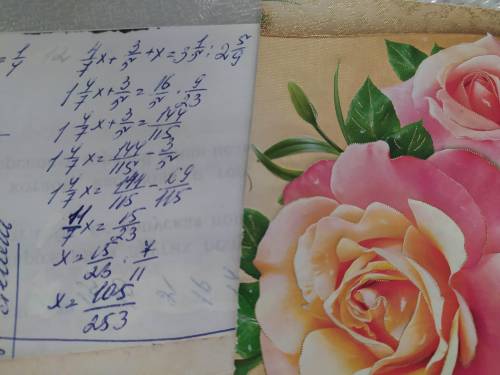 = 1/4
4/7 x + 3/5 + x = 3 1/5 : 2 5/9
1 4/7 x + 3/5 = 16/5 · 9/23
1 4/7 x + 3/5 = 144/115
1 4/7 x = 144/115 - 3/5
1 4/7 x = 144/115 - 69/115
11/7 x = 15/23
x = 15/23 · 7/11
x = 105/253